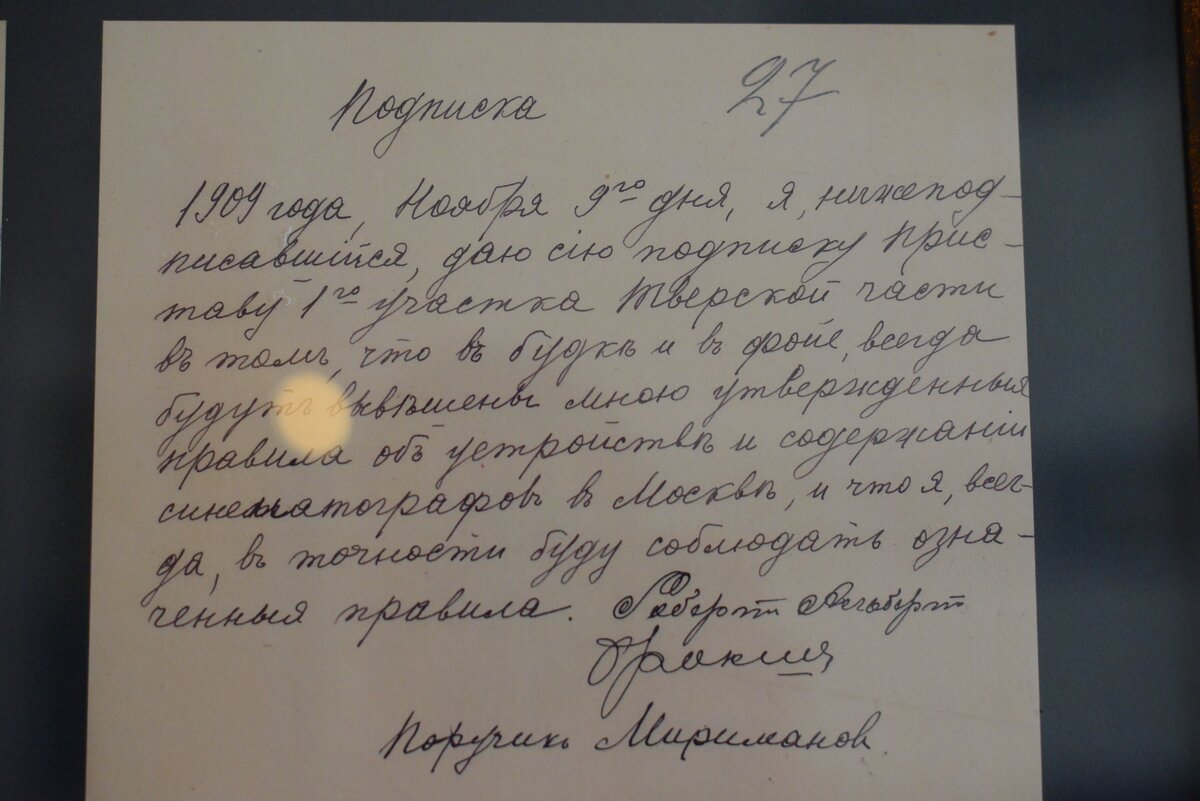 Подписка
27
1909 года, Ноября 9го дня, я, нижепод-
писавшійся, даю сію подписку Прис-
таву 1го участка Тверской части
въ томъ, что въ будкѣ и въ фойе, всегда
будутъ вывѣшены мною утвержденныя
правила объ устройствѣ и содержаніи
синематографовъ въ Москвѣ, и что я, всег-
да, въ точности буду соблюдать озна-
ченныя правила. Робертъ
Поручикъ Миримановъ